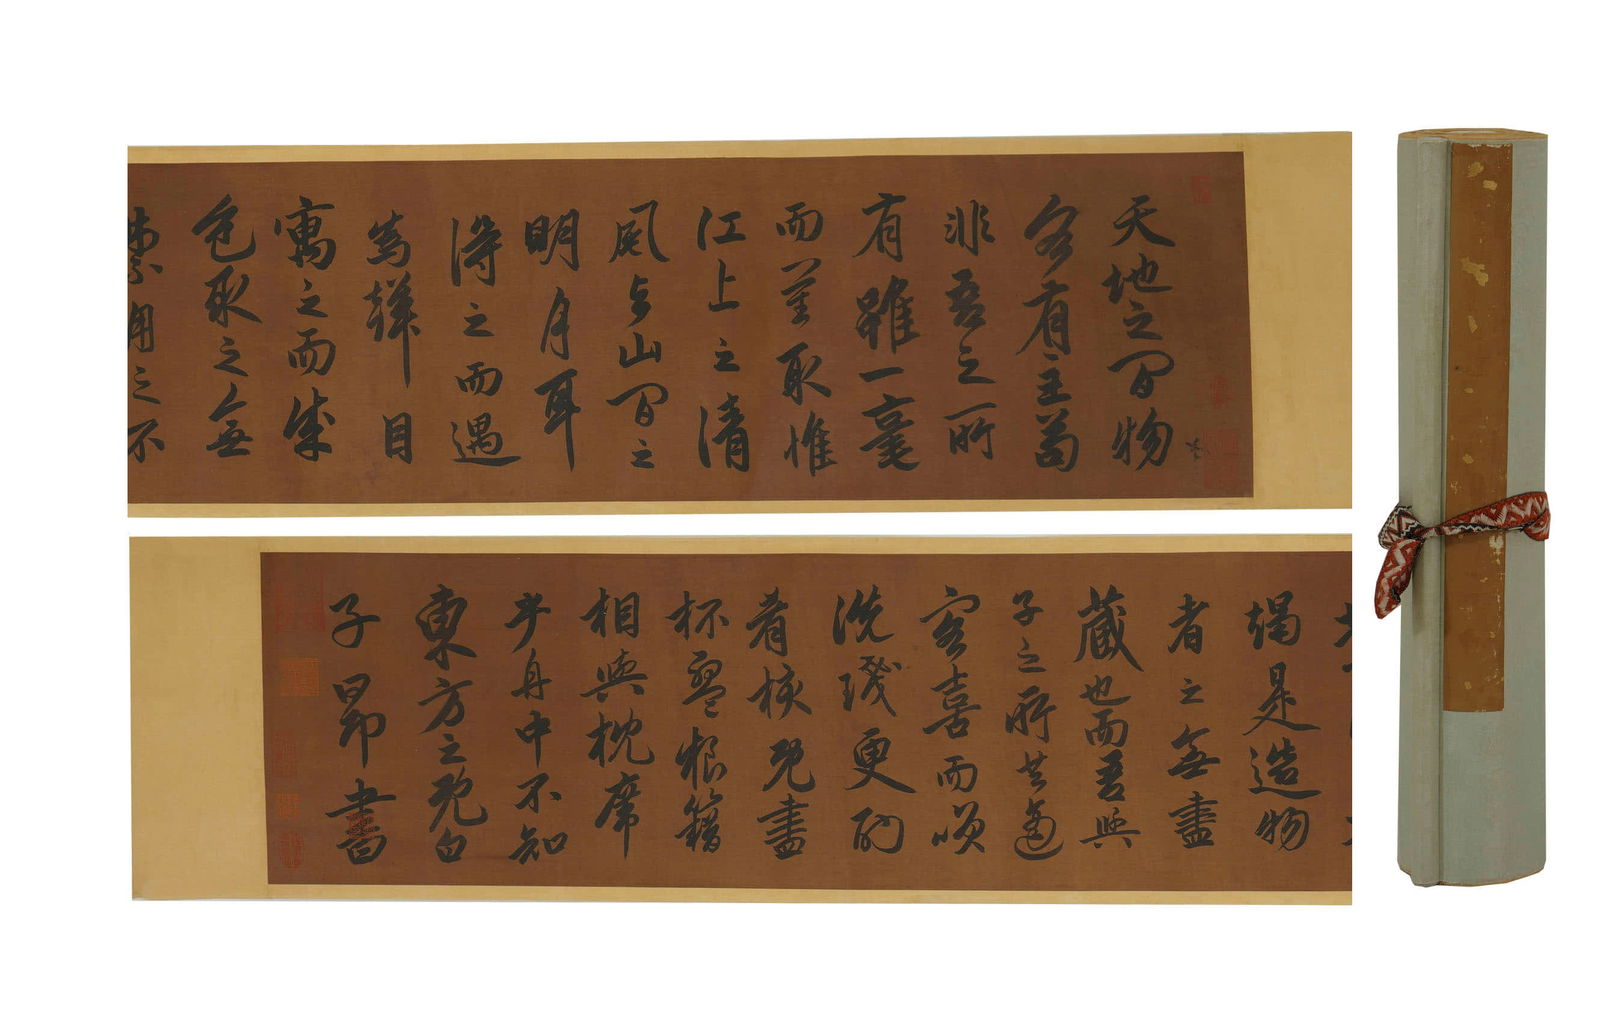 天地之間物
各有主苟
非吾之所
有雖一毫
而莫取惟
江上之清
風與山間之
明月耳
得之而遇
為聲目
寓之而成
色取之無
禁用之不
竭是造物
者之無盡
藏也而吾與
子之所共適
客喜而笑
洗盞更酌
肴核既盡
杯盤狼籍
相與枕席
乎舟中不知
東方之既白
子昂書